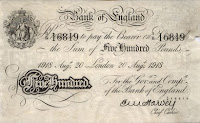 Bank of England
16849 to pay the Bearer on 16849
the Sum of Five Hundred Pounds
1918 Aug. 20 London 20 Aug. 1918
For the Gov. and Comp.ª
Five Hundred
of the Bank of England.
Chief Cashier